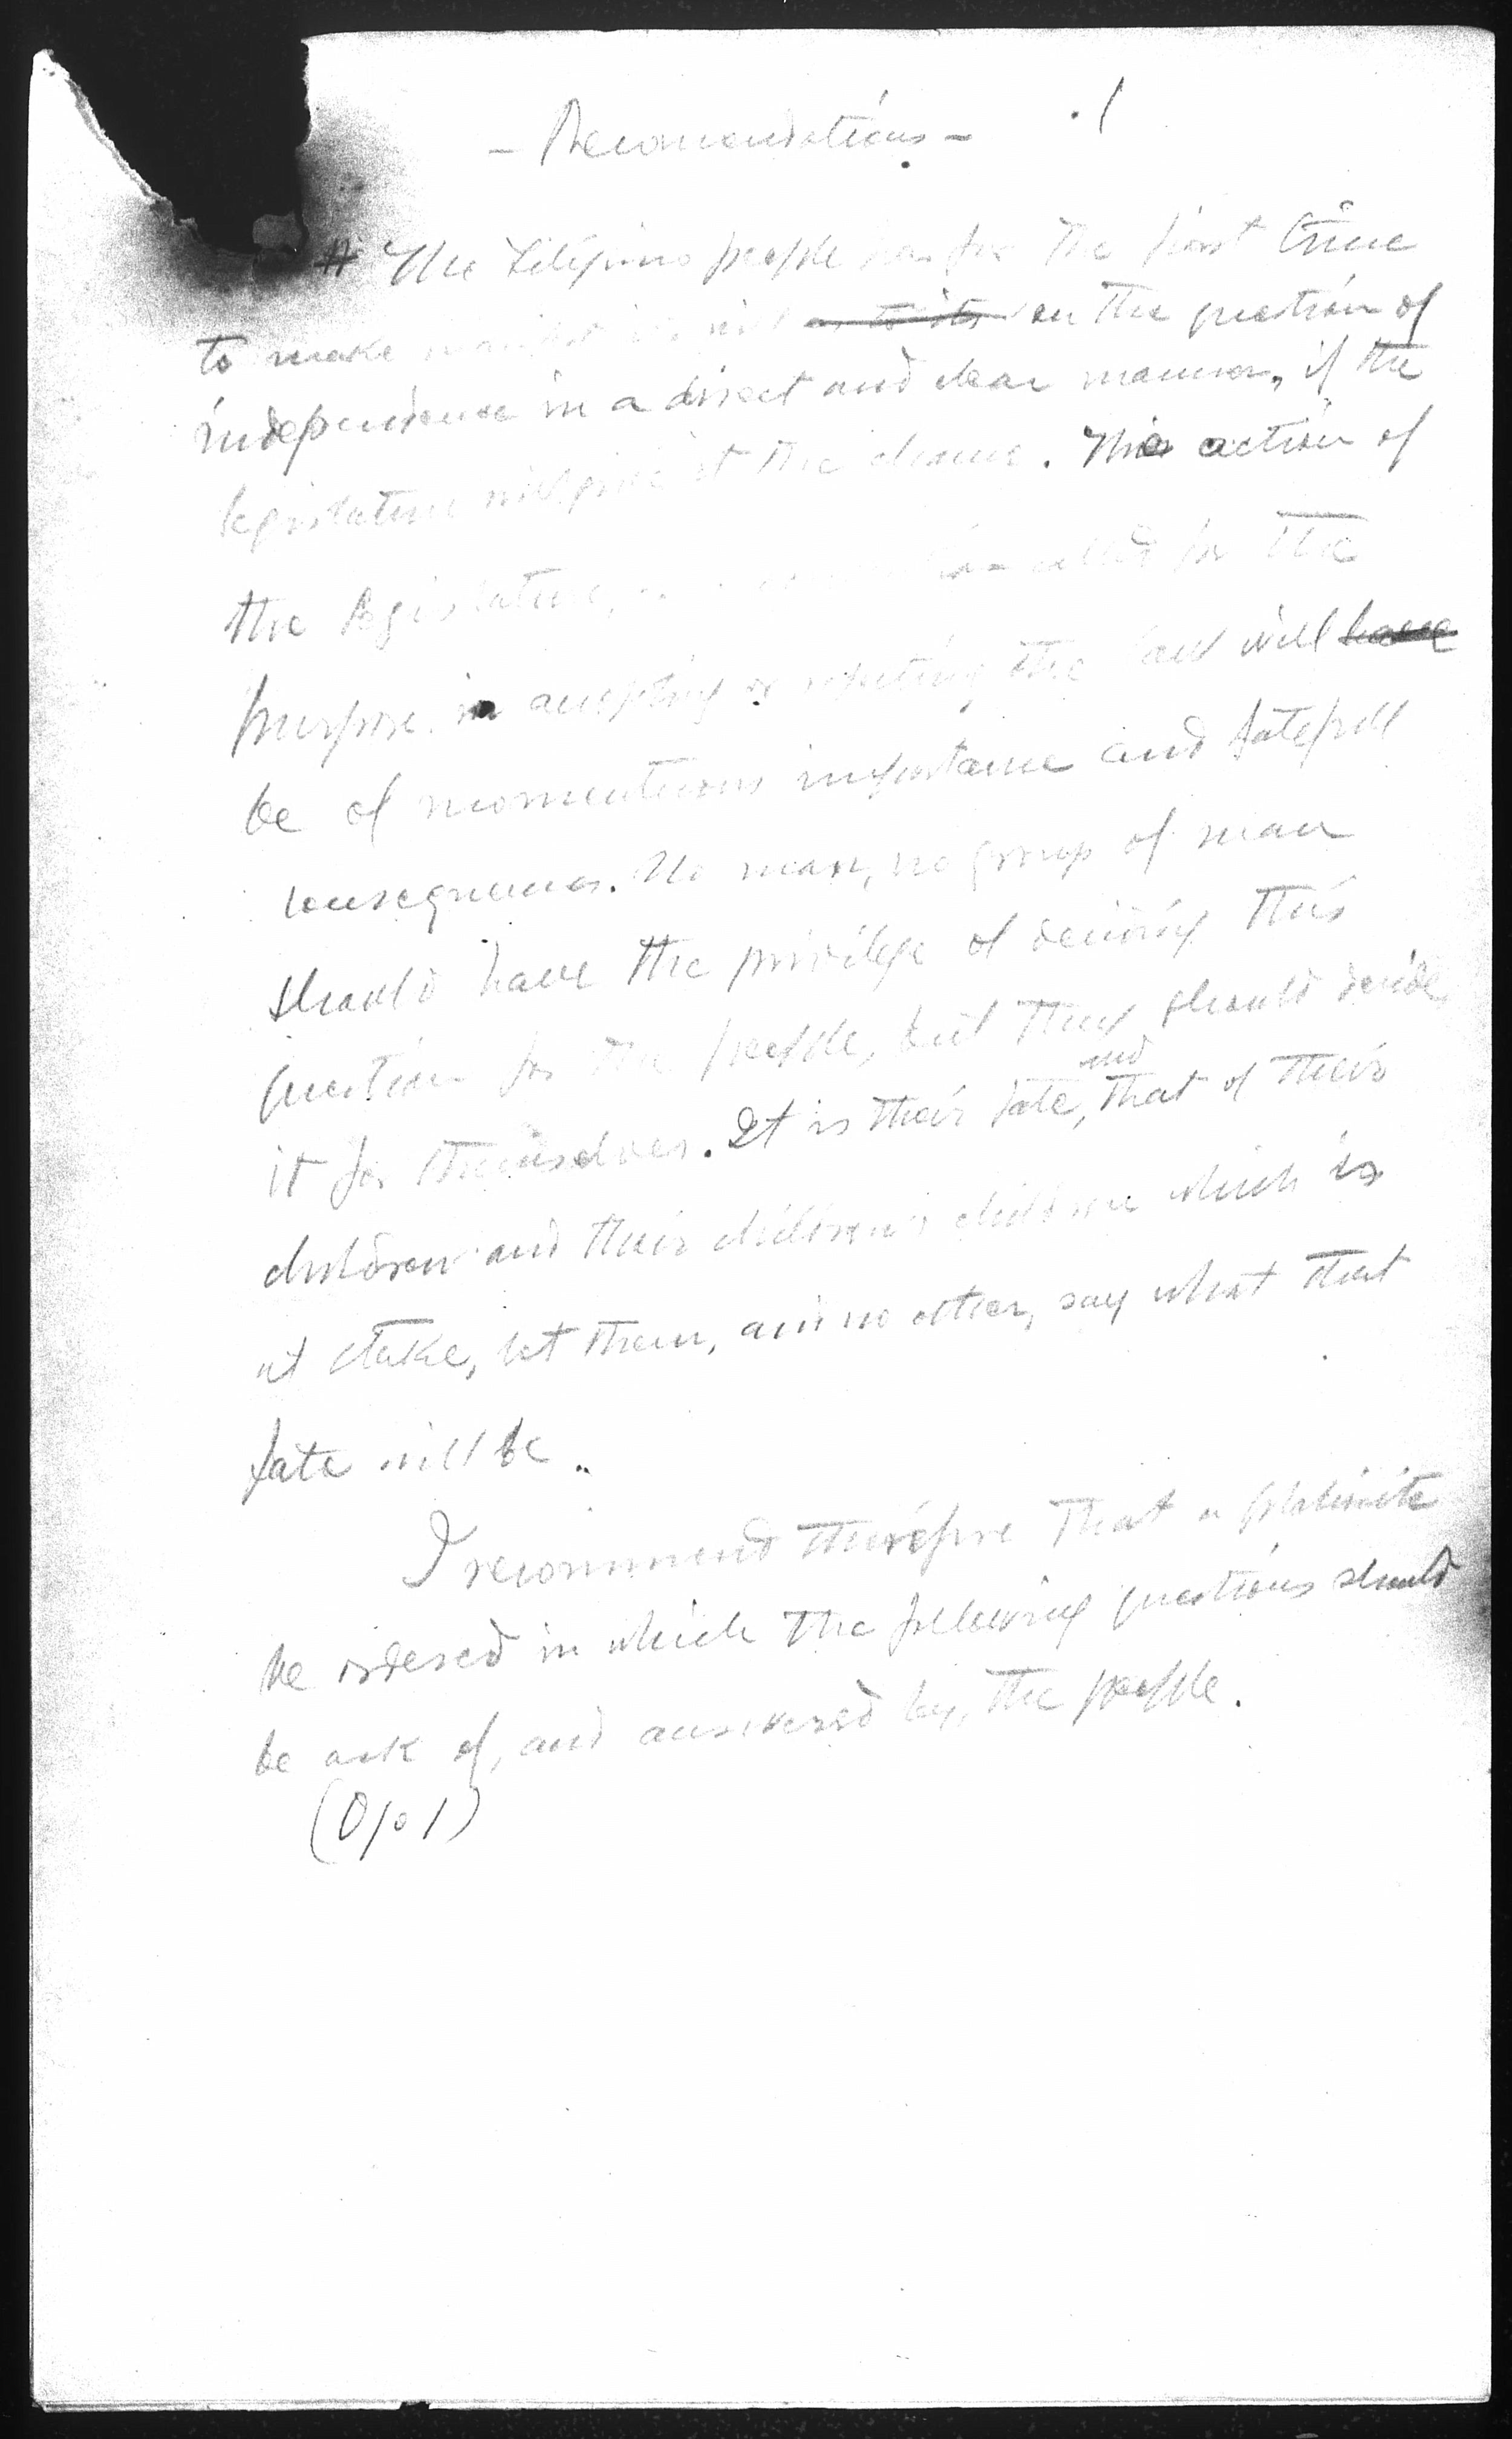 - Recomendations - 1
The Filipino people has for the first time
to make manifest its will on the question of
independence in a direct and clear manner, if the
legislature will give it the chance. The action of
the legislature, called for the
purpose in accepting or rejecting the law will have
be of momentuous importance and fatefull
consequences. No man, no group of man
should have the privilege of deciding this
question for the people, but they should decide
it for themselves. It is their fate, and that of their
children and their children's children which is
at stake, let them, and no other, say what that
fate will be.
I recommend therefore that a plebiscite
be ordered in which the following questions should
be ask of, and answered by, the people.